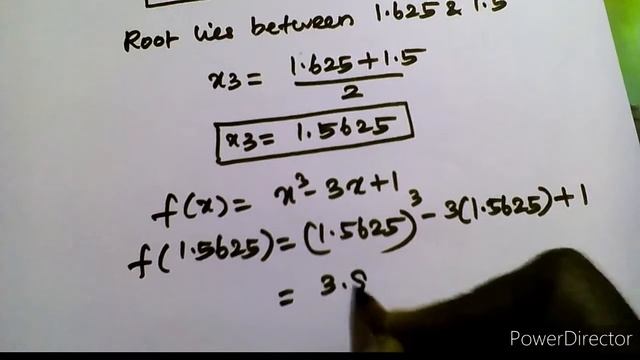 Root lies between 1.625 & 1.5
x3 = 1.625+1.5
2
x3 = 1.5625
f(x) = x³ - 3x+1
f(1.5625) = (1.5625)³ - 3(1.5625)+1
= 3.8
PowerDirector